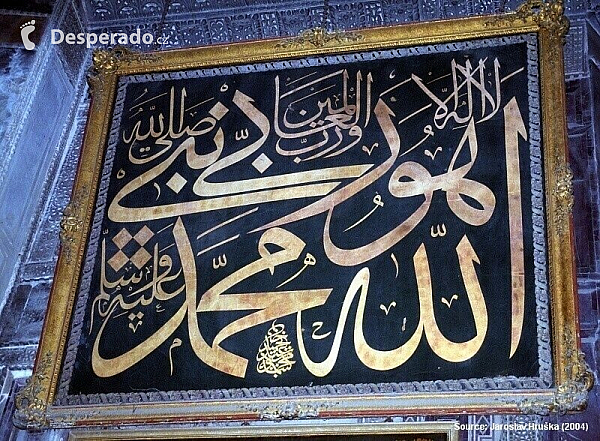 Desperado.cz
لا اله الا
الله هو ربي
ورب العالمين
محمد نبي
صلى الله
عليه وسلم
Source: Jaroslav Hruška (2004)